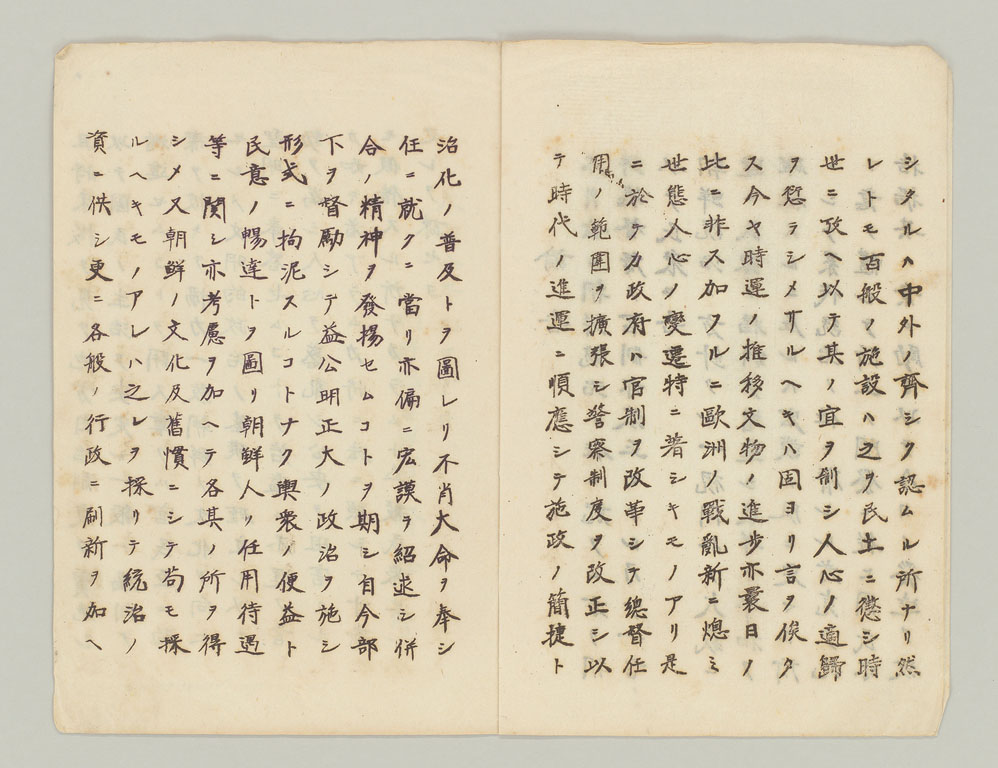 シタルハ中外ノ齊シク認ムル所ナリ然
レトモ百般ノ施設ハ之ヲ民土ニ懲シ時
世ニ攷ヘ以テ其ノ宜ヲ制シ人心ノ適歸
ヲ愆テシメサルヘキハ固ヨリ言ヲ俟タ
ス今ヤ時運ノ推移文物ノ進步亦曩日ノ
比ニ非ス加フルニ歐洲ノ戰亂新ニ熄ミ
世態人心ノ變遷特ニ著シキモノアリ是
ニ於テカ政府ハ官制ヲ改革シテ總督任
用ノ範圍ヲ擴張シ警察制度ヲ改正シ以
テ時代ノ進運ニ順應シテ施政ノ簡捷ト
治化ノ普及トヲ圖レリ不肖大命ヲ奉シ
任ニ就クニ當リ亦偏ニ宏謨ヲ紹述シ併
合ノ精神ヲ發揚セムコトヲ期シ自今部
下ヲ督勵シテ益公明正大ノ政治ヲ施シ
形式ニ拘泥スルコトナク輿衆ノ便益ト
民意ノ暢達トヲ圖リ朝鮮人ノ任用待遇
等ニ関シ亦考慮ヲ加ヘテ各其ノ所ヲ得
シメ又朝鮮ノ文化及舊慣ニシテ苟モ採
ルヘキモノアレハ之レヲ採リテ統治ノ
資ニ供シ更ニ各般ノ行政ニ刷新ヲ加ヘ